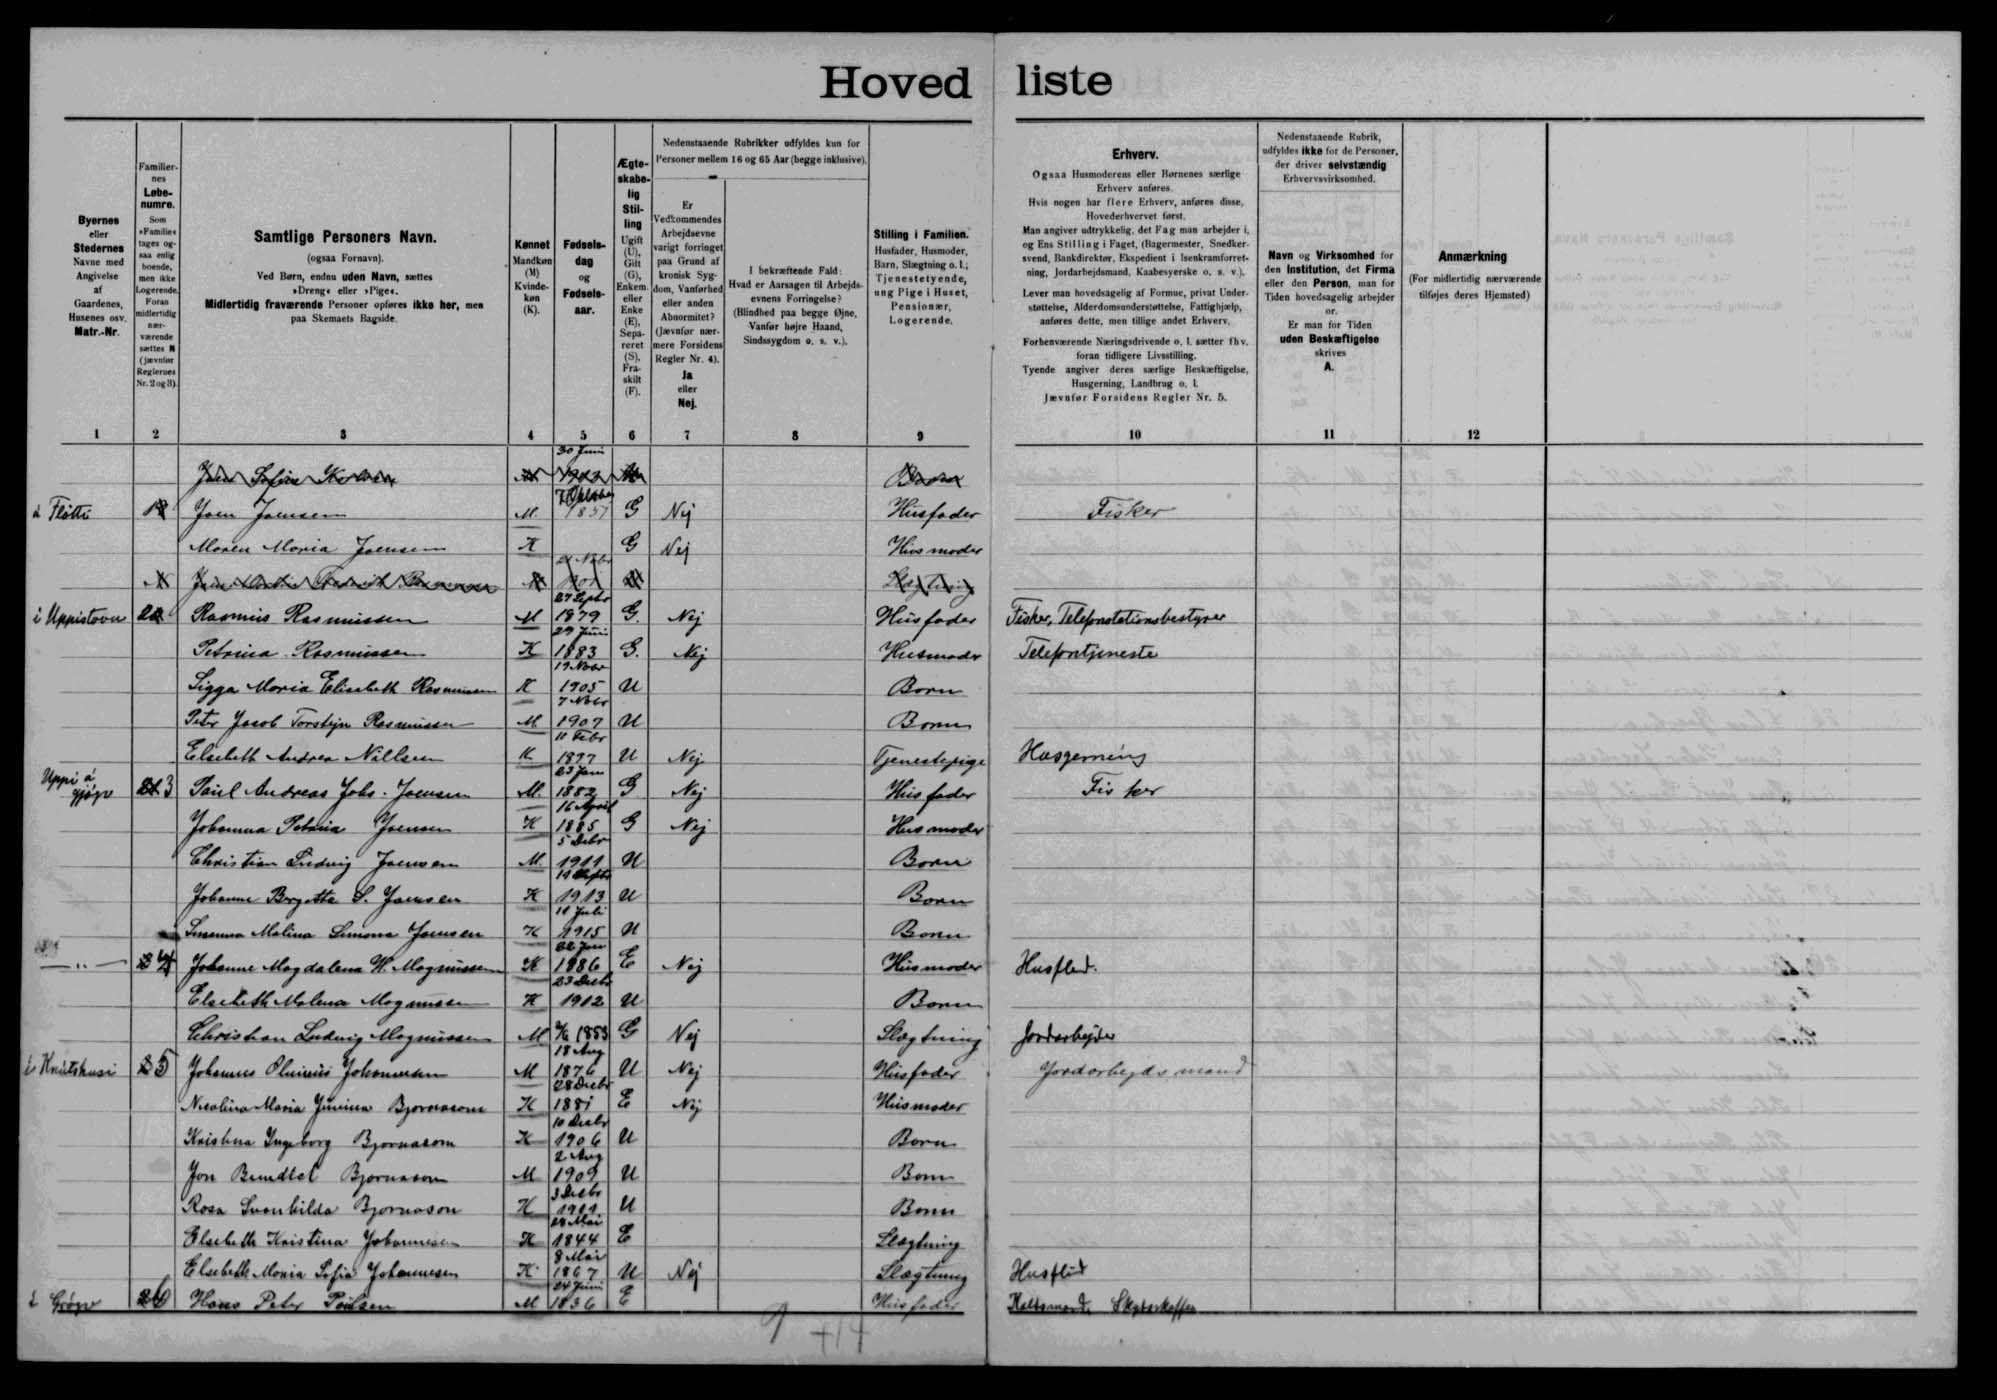 Hoved liste
Byernes
eller
Stedernes
Navne med
Angivelse
af
Gaardenes,
Husenes osv.
Matr.-Nr.
Familier-
nes
Løbe-
numre.
Som
»Familie«
tages og-
saa enlig
boende,
men ikke
Logerende.
Foran
midlertidig
nær-
værende
sættes N
(jævnfør
Reglernes
Nr. 2 og 3).
Samtlige Personers Navn.
(ogsaa Fornavn).
Ved Børn, endnu uden Navn, sættes
»Dreng« eller »Pige«.
Midlertidig fraværende Personer opføres ikke her, men
paa Skemaets Bagside.
Kønnet
Mandkøn
(M)
Kvinde-
køn
(K).
Fødsels-
dag
og
Fødsels-
aar.
Ægte-
skabe-
lig
Stil-
ling
Ugift
(U),
Gift
(G),
Enkem.
eller
Enke
(E),
Sepa-
reret
(S),
Fra-
skilt
(F).
Nedenstaaende Rubrikker udfyldes kun for
Personer mellem 16 og 65 Aar (begge inklusive).
Er
Vedkommendes
Arbejdsevne
varigt forringet
paa Grund af
kronisk Syg-
dom, Vanførhed
eller anden
Abnormitet?
(Jævnfør nær-
mere Forsidens
Regler Nr. 4).
Ja
eller
Nej.
I bekræftende Fald:
Hvad er Aarsagen til Arbejds-
evnens Forringelse?
(Blindhed paa begge Øjne,
Vanfør højre Haand,
Sindssygdom o. s. v.).
Stilling i Familien.
Husfader, Husmoder,
Barn, Slægtning o. l.;
Tjenestetyende,
ung Pige i Huset,
Pensionær,
Logerende.
Erhverv.
Ogsaa Husmoderens eller Børnenes særlige
Erhverv anføres.
Hvis nogen har flere Erhverv, anføres disse,
Hovederhvervet først.
Man angiver udtrykkelig, det Fag man arbejder i,
og Ens Stilling i Faget, (Bagermester, Snedker-
svend, Bankdirektør, Ekspedient i Isenkramforret-
ning, Jordarbejdsmand, Kaabesyerske o. s. v.).
Lever man hovedsagelig af Formue, privat Under-
støttelse, Alderdomsunderstøttelse, Fattighjælp,
anføres dette, men tillige andet Erhverv.
Forhenværende Næringsdrivende o. l. sætter fhv.
foran tidligere Livsstilling.
Tyende angiver deres særlige Beskæftigelse,
Husgerning, Landbrug o. l.
Jævnfør Forsidens Regler Nr. 5.
Nedenstaaende Rubrik,
udfyldes ikke for de Personer,
der driver selvstændig
Erhvervsvirksomhed.
Navn og Virksomhed for
den Institution, det Firma
eller den Person, man for
Tiden hovedsagelig arbejder
for.
Er man for Tiden
uden Beskæftigelse
skrives
A.
Anmærkning
(For midlertidig nærværende
tilføjes deres Hjemsted)
1 2 3 4 5 6 7 8 9 10 11 12
30 Juni 1913 Barn
á Fløtti Joen Joensen M. 1857 G Nej Husfader Fisker
Maren Maria Joensen K G Nej Husmoder
M 1901 Slægtning
i Uppistovu Rasmus Rasmussen M 27 Septbr 1879 G. Nej Husfader Fisker, Telefonstationsbestyrer
Petrina Rasmussen K 29 Juni 1883 G. Nej Husmoder Telefontjeneste
Sigga Maria Elisabeth Rasmussen K 19 Nobr 1905 U Barn
Peter Jacob Torstejn Rasmussen M 7 Nobr 1907 U Barn
Elsebeth Andrea Nillsen K 11 Febr 1897 U Nej Tjenestepige Husgerning
Uppi á gjógv 3 Paul Andreas Johs. Joensen M. 23 Jan 1882 G Nej Husfader Fisker
Johanna Petrina Joensen K 16 April 1885 G Nej Husmoder
Christian Ludvig Joensen M. 5 Debr 1911 U Barn
Johanne Birgitte S. Joensen K 1913 U Barn
Susanna Malina Simona Joensen K 11 Juli 1915 U Barn
— " — 4 Johanne Magdalena W. Magnussen K 22 Jan 1886 E Nej Husmoder Husflid.
Elsebeth Malena Magnussen K 23 Decbr 1912 U Barn
Christian Ludvig Magnussen M 1853 G Nej Slægtning Jordarbejder
i Knútshusi 5 Johannes Oluvius Johannesen M 18 Aug 1876 U Nej Husfader Jordarbejdsmand
Nicolina Maria Juvina Bjornason K 28 Decbr 1881 E Nej Husmoder
Kristina Ingeborg Bjornason K 10 Decbr 1906 U Barn
Jon Bendtel Bjornason M 2 Aug 1909 U Barn
Rosa Svanhilda Bjornason K 3 Decbr 1911 U Barn
Elsebeth Kristina Johannesen K 28 Mai 1844 E Slægtning
Elsebeth Maria Sofia Johannesen K 8 Mai 1867 U Nej Slægtning Husflid
i Grógv 6 Hans Peter Poulsen M 24 Juni 1836 E Husfader
9 +14